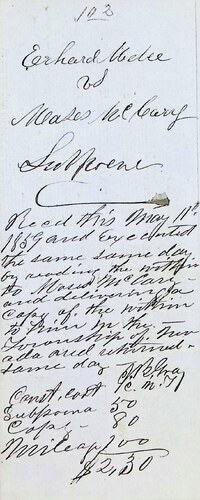 102
Erhard
vs
Moses McCary
Subpoena
Recd this May 11th
1859 and Executed
the same same day
by reading the within
to Moses McCary
and delivering a
copy of the within
to him in the
Township of
and returned
same day
Const. cost
Subpoena 50
Copy - 80
Mileage 1.00
$2,30